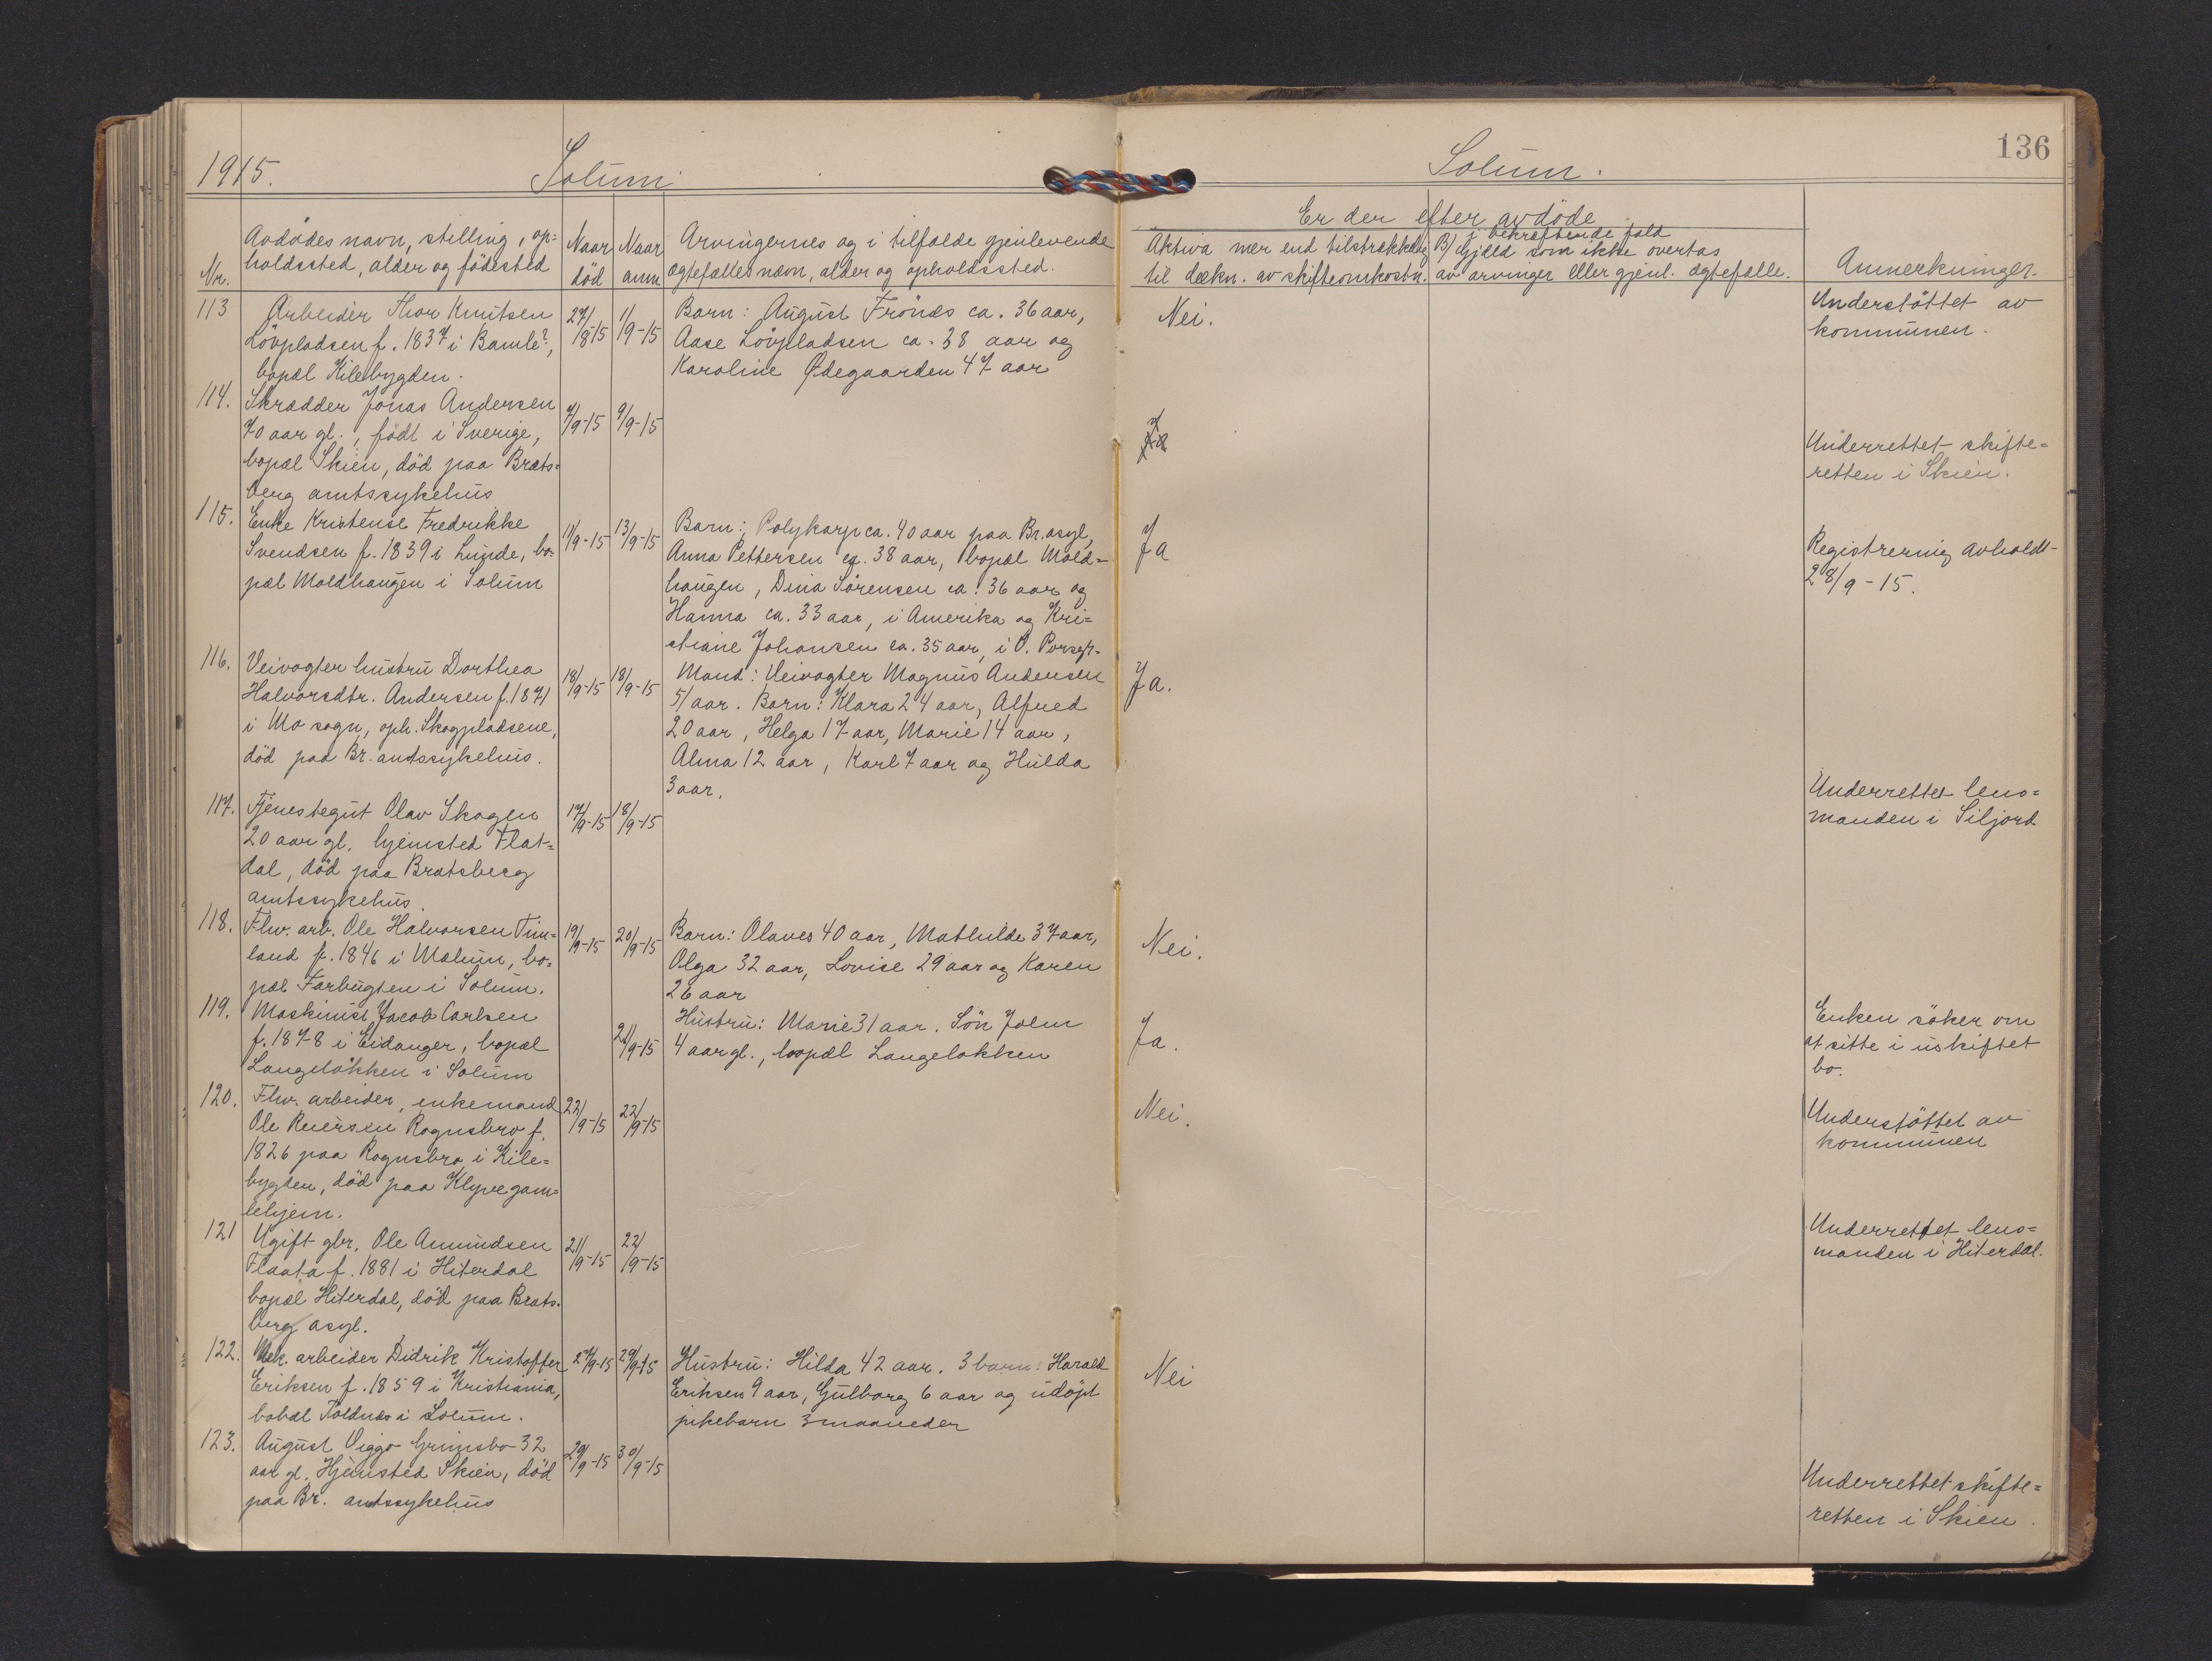 1915.
Solum
Solum.
136
Nr.
Avdødes navn, stilling, op=
holdssted, alder og fødested
Naar
død
Naar
anm
Arvingernes og i tilfælde gjenlevende
ægtefælles navn, alder og opholdssted.
Er der efter avdøde
Aktiva mer end tilstrækkelig
til dækn. av skifteomkostn.
i bekræftende fald
B/ Gjæld som ikke overtas
av arvinger eller gjenl. ægtefælle.
Anmerkninger.
113
Arbeider Thor Knutsen
Løvpladsen f. 1837 i Bamle?,
bopæl Kilebygden.
27/8-15
1/9-15
Barn: August Frönes ca. 36 aar,
Aase Løvpladsen ca. 38 aar og
Karoline Ødegaarden 47 aar
Nei.
Understøttet av
kommunen.
114.
Skrædder Jonas Andersen
70 aar gl., født i Sverige,
bopæl Skien, død paa Brats=
berg amtssykehus
7/9-15
9/9-15
Ja
Underrettet skifte=
retten i Skien.
115.
Enke Kristense Fredrikke
Svendsen f. 1839 i Lunde, bo=
pæl Moldhaugen i Solum
11/9-15
13/9-15
Barn: Polykarp ca. 40 aar paa Br. asyl,
Anna Pettersen ca. 38 aar, bopæl Mold=
haugen, Dina Sørensen ca. 36 aar og
Hanna ca. 33 aar, i Amerika og Kri=
stiane Johansen ca. 35 aar, i Ø. Porsgr.
Ja
Registrering avholdt
28/9-15.
116.
Veivogter hustru Dorthea
Halvorsdtr. Andersen f. 1871
i Mo sogn, oph. Skogpladsene,
død paa Br. amtssykehus.
18/9-15
18/9-15
Mand: Veivogter Magnus Andersen
51 aar. Barn: Klara 24 aar, Alfred
20 aar, Helga 17 aar, Marie 14 aar,
Alma 12 aar, Karl 7 aar og Hulda
3 aar.
Ja.
117.
Tjenestegut Olav Skogen
20 aar gl. hjemsted Flat=
dal, død paa Bratsberg
amtssykehus.
17/9-15
18/9-15
Underrettet lens=
manden i Siljord
118.
Fhv. arb. Ole Halvorsen Tim=
land f. 1846 i Mælum, bo=
pæl Farbugten i Solum.
19/9-15
20/9-15
Barn: Olaves 40 aar, Mathilde 37 aar,
Olga 32 aar, Lovise 29 aar og Karen
26 aar
Nei.
119.
Maskinist Jacob Carlsen
f. 1878 i Eidanger, bopæl
Langeløkken i Solum
21/9-15
Hustru: Marie 31 aar. Søn John
4 aar gl., bopæl Langeløkken
Ja.
Enken søker om
at sitte i uskiftet
bo.
120.
Fhv. arbeider, enkemand
Ole Reiersen Rognsbro f.
1826 paa Rognsbro i Kile=
bygden, død paa Klyve gam=
lehjem.
22/9-15
22/9-15
Nei.
Understøttet av
kommunen
121
Ugift gbr. Ole Amundsen
Flaata f. 1881 i Hiterdal
bopæl Hiterdal, død paa Brats=
berg asyl.
21/9-15
22/9-15
Underrettet lens=
manden i Hiterdal.
122.
Mek. arbeider Didrik Kristoffer
Eriksen f. 1859 i Kristiania,
bopæl Toldnes i Solum.
27/9-15
29/9-15
Hustru: Hilda 42 aar. 3 barn: Harald
Eriksen 9 aar, Gulborg 6 aar og udøpt
pikebarn 3 maaneder
Nei
123.
August Viggo Grimsbo 32
aar gl. Hjemsted Skien, død
paa Br. amtssykehus
29/9-15
30/9-15
Underrettet skifte=
retten i Skien.